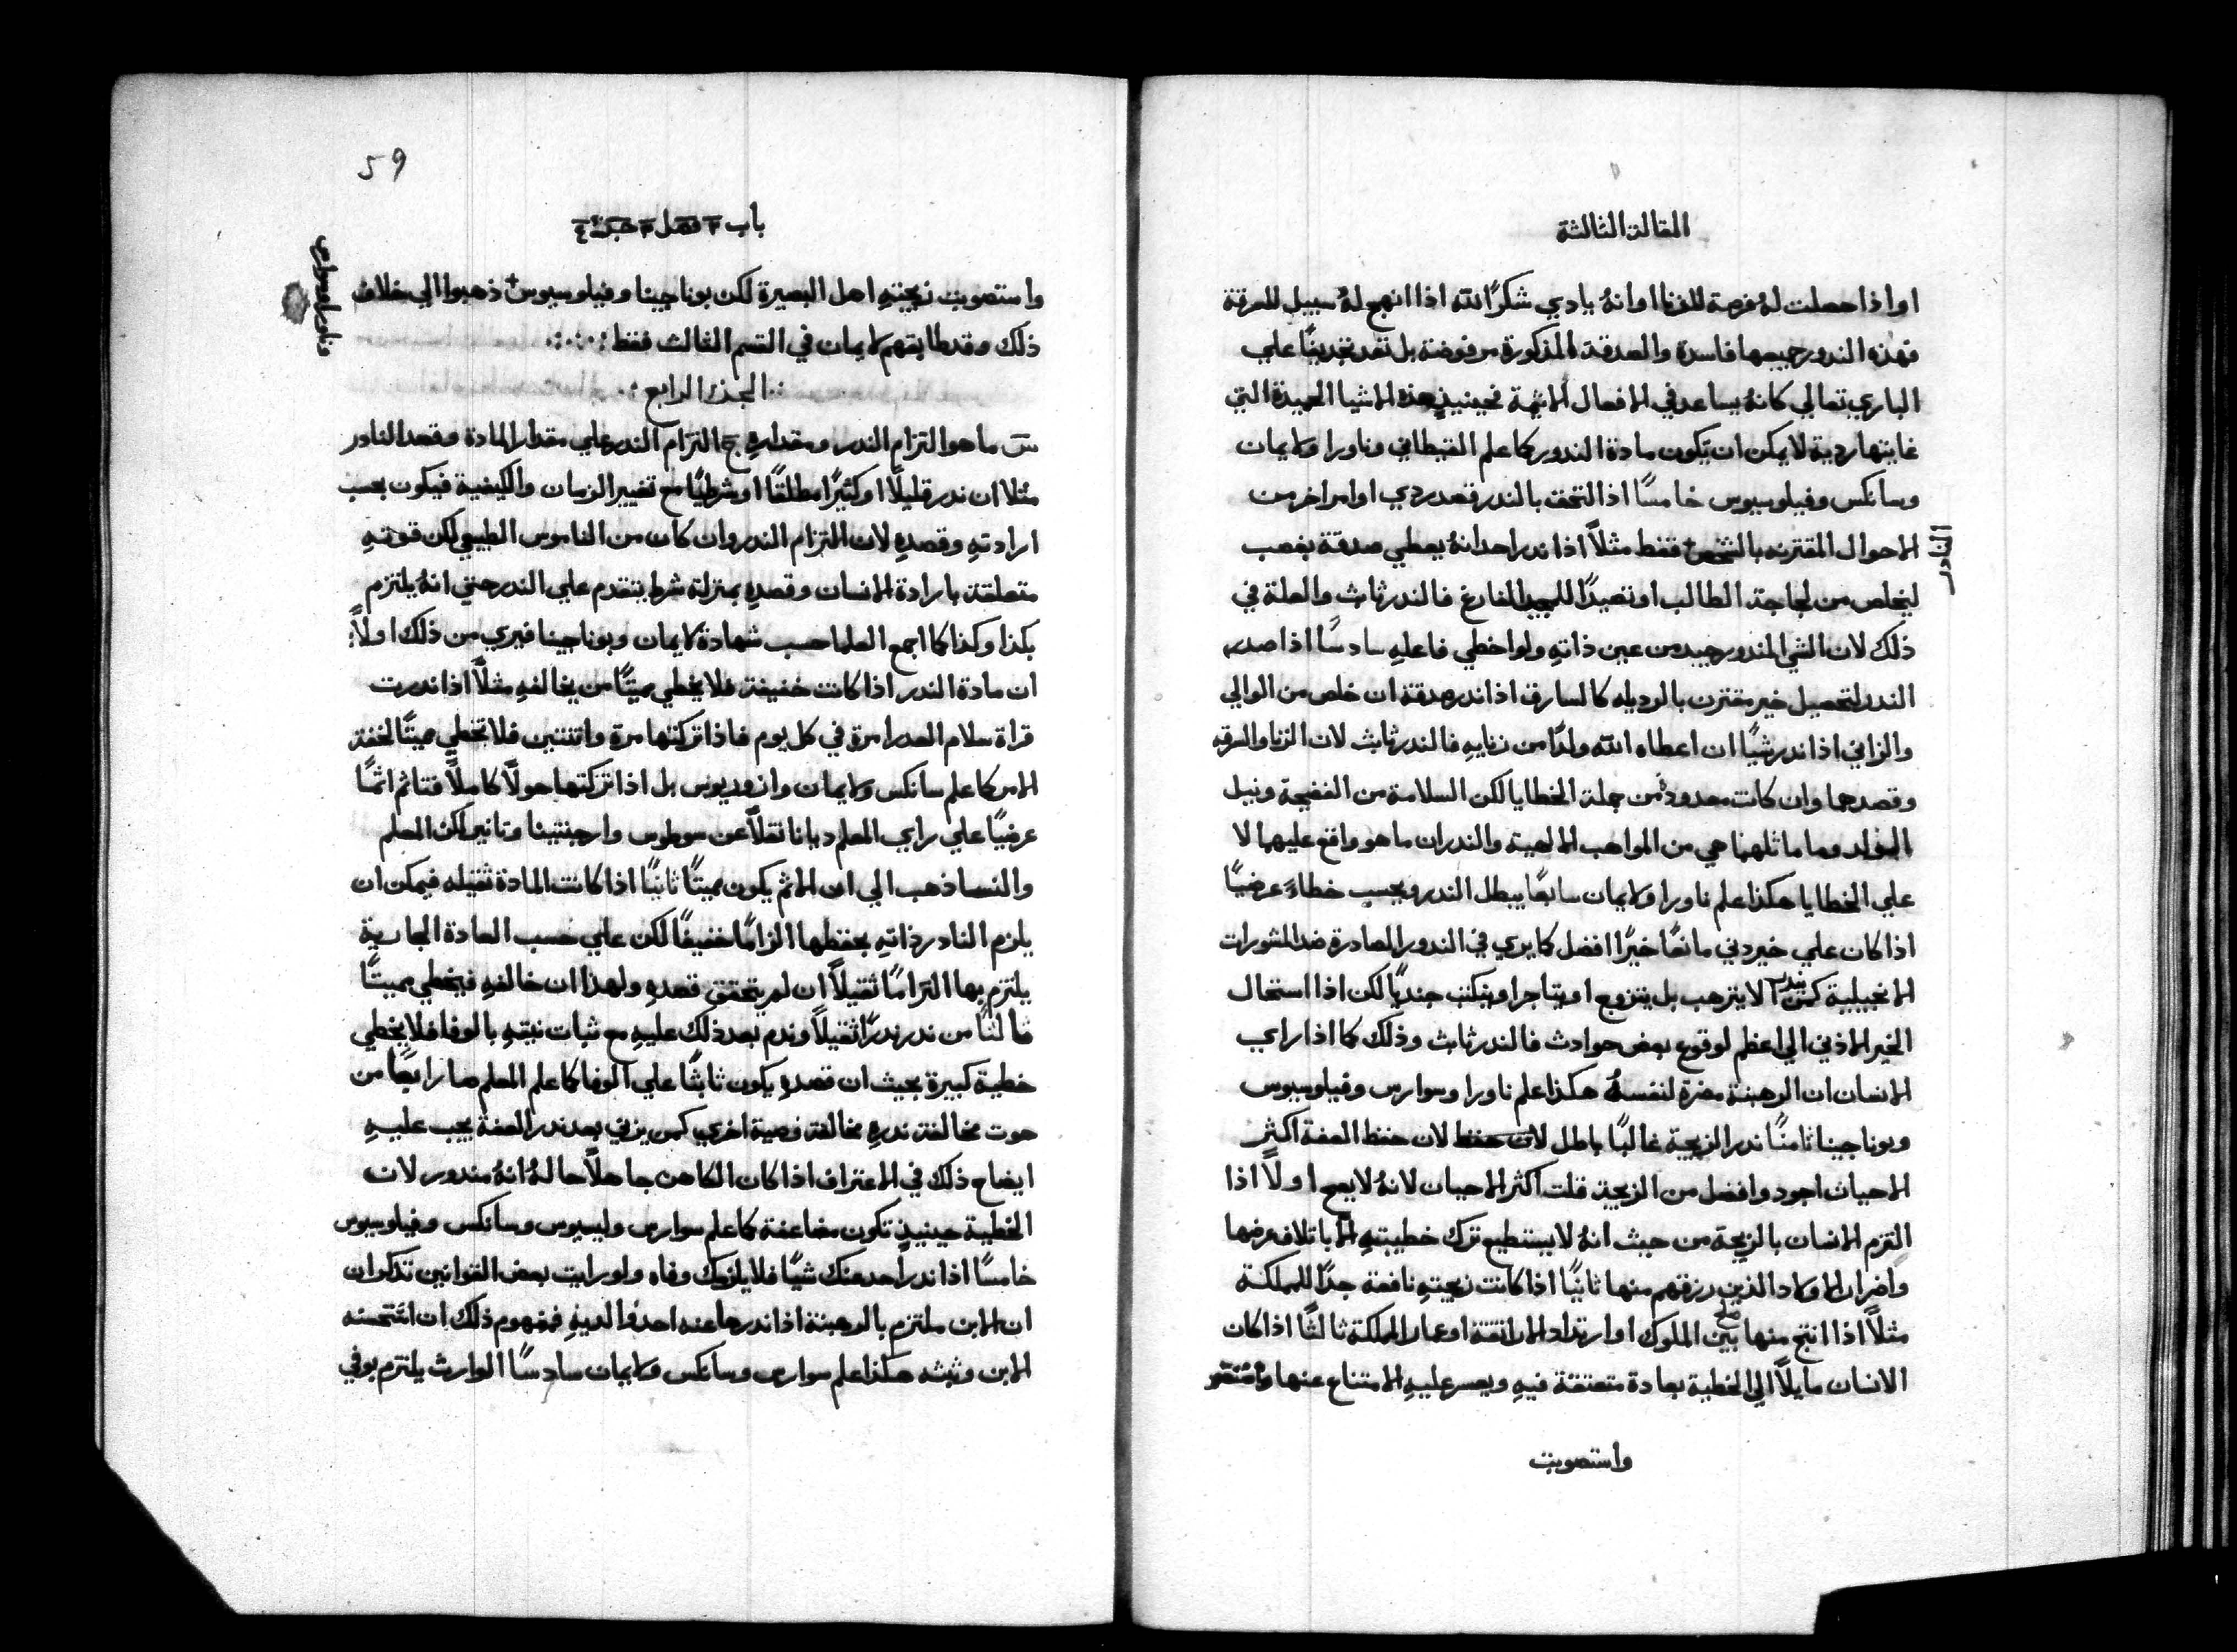 المقالة الثالثة
او اذا حصلت لهُ فرصة للزنا او انهُ يادي شكرًا لله اذا انهج لهُ سبيل للسرقة
فهذه الندور جميعها فاسدة والصدقة المذكورة مرفوضة بل تعد تجديفًا علي
الباري تعالي كانهُ يساعد في الافعال الاثيمة فحينيذٍ هذه الاشيا الحميدة التي
غايتها ردية لا يمكن ان تكون مادة الندور كما علم القيطاني وناورا ولايمان
وسانكس وفيلوسيوس خامسًا اذا التحق بالندر قصد ردي او امر اخر من
الاحوال المقترنه بالشخص فقط مثلاً اذا ندر احد انهُ يعطي صدقة بغصب
النادر
ليخلص من لجاجة الطالب او تصيدًا للمجد الفارغ فالندر ثابث والعلة في
ذلك لان الشي المندور جيد من عين ذاتهِ ولو اخطي فاعلهِ سادسًا اذا صدر
الندر لتحصيل خير مقترن بالرديله كالسارق اذا ندر صدقة ان خلص من الوالي
والزاني اذا ندر شيًا ان اعطاه الله ولدًا من زنايهِ فالندر ثابث لان الزنا والسرقه
وقصدهما وان كانت معدودة من جملة الخطايا لكن السلامة من الفضيحة ونيل
المولد وما ماثلهما هي من المواهب الالهية والندران ما هو واقع عليهما لا
علي الخطايا هكذا علم ناورا ولايمان سابعًا يبطل الندر ويحسب خطاءً عرضيًا
اذا كان علي خير دني مانعًا خيرًا افضل كما يري في الندور الصادرة ضد المشورات
الانجيلية كمن ندر الا يترهب بل يتزوج او يتاجر او يكتب جنديًا لكن اذا استحال
الخير الاذني الي اعظم لوقوع بعض حوادث فالندر ثابث وذلك كما اذا راي
الانسان ان الرهبنة مضرة لنفسهُ هكذا علم ناورا وسوارس وفيلوسيوس
وبوناجينا ثامنًا ندر الزيجة غالبًا باطل لان حفظ لان حفظ العفة اكثر
الاحيان اجود وافضل من الزيجة قلت اكثر الاحيان لانهُ لا يصح اولاً اذا
التزم الانسان بالزيجة من حيث انهُ لا يستطيع ترك خطيتهِ الا باتلاف عرضها
واضرار الاولاد الذين رزقهم منها ثانيًا اذا كانت زيجتهِ نافعة جدًا للمملكة
مثلاً اذا انتج منها صلح بين الملوك او ارتداد الاراتقة او عمار المملكة ثالثًا اذا كان
الانسان مايلاً الي الخطية بعادة متعتقة فيهِ ويعسر عليهِ الامتناع عنها
واستصوبت
59
باب ٣ فصل ٣ جزء ٤
واستصوبت زيجتهِ اهل البصيرة لكن بوناجينا وفيلوسيوس ذهبوا الي خلاف
ذلك وقد طابقهم لايمان في القسم الثالث فقط
الجزء الرابع
س ما هو التزام الندر ومقدارهِ ج التزام الندر علي مقدار المادة وقصد النادر
مثلا ان ندر قليلاً او كثيرًا مطلقًا او شرطيًا مع تغيير الزمان والكيفية فيكون بحسب
ارادتهِ وقصدهِ لان التزام الندر وان كان من الناموس الطبيعي لكن قوتهِ
متعلقة بارادة الانسان وقصدهِ بمنزلة شرط يتقدم علي الندر حتي انهُ يلتزم
بكذا وكذا كما اجمع العلما حسب شهادة لايمان وبوناجينا فيري من ذلك اولاً
ان مادة الندر اذا كانت خفيفة فلا يخطي مميتًا من يخالفهِ مثلاً اذا ندرت
قراة سلام العدرا مرة في كل يوم فاذا تركتها مرة واتنتين فلا تخطي مميتًا لخفة
الامر كما علم سانكس ولايمان وازوريوس بل اذا تركتها حولاً كاملاً فتاثم اثمًا
عرضيًا علي راي المعلم ديانا نقلاً عن سوطوس وارجنتينا وتانير لكن المعلم
والنسا ذهب الي ان الاثم يكون مميتًا ثانيًا اذا كانت المادة ثقيله فيمكن ان
يلزم النادر ذاتهِ بحفظها الزامًا خفيفًا لكن علي حسب العادة الجارية
يلتزم بها التزامًا ثقيلاً ان لم يتحقق قصدهِ ولهذا ان خالفهِ فيخطي مميتًا
ثالثًا من ندر ندرًا ثقيلاً وندم بعد ذلك عليهِ مع ثبات نيتهِ بالوفا فلا يخطي
خطية كبيرة بحيث ان قصدهِ يكون ثابثًا علي الوفا كما علم المعلم صا رابعًا من
حوت مخالفة ندرهِ مخالفة وصية اخري كمن يزني بعد ندر العفة يجب عليهِ
ايضاح ذلك في الاعتراف اذا كان الكاهن جاهلاً حالهُ انهُ مندور لان
الخطية حينيذٍ تكون مضاعفة كما علم سوارس وليسيوس وسانكس وفيلوسيوس
خامسًا اذا ندر احد عنك شيًا فلا يلزمك وفاه ولو رايت بعض القوانين تذكر ان
ان الابن ملتزم بالرهبنة اذا ندرها عنه احد والديهِ فمفهوم ذلك ان استحسنه
الابن وثبثه هكذا علم سوارس وسانكس ولايمان سادسًا الوارث يلتزم بوفي